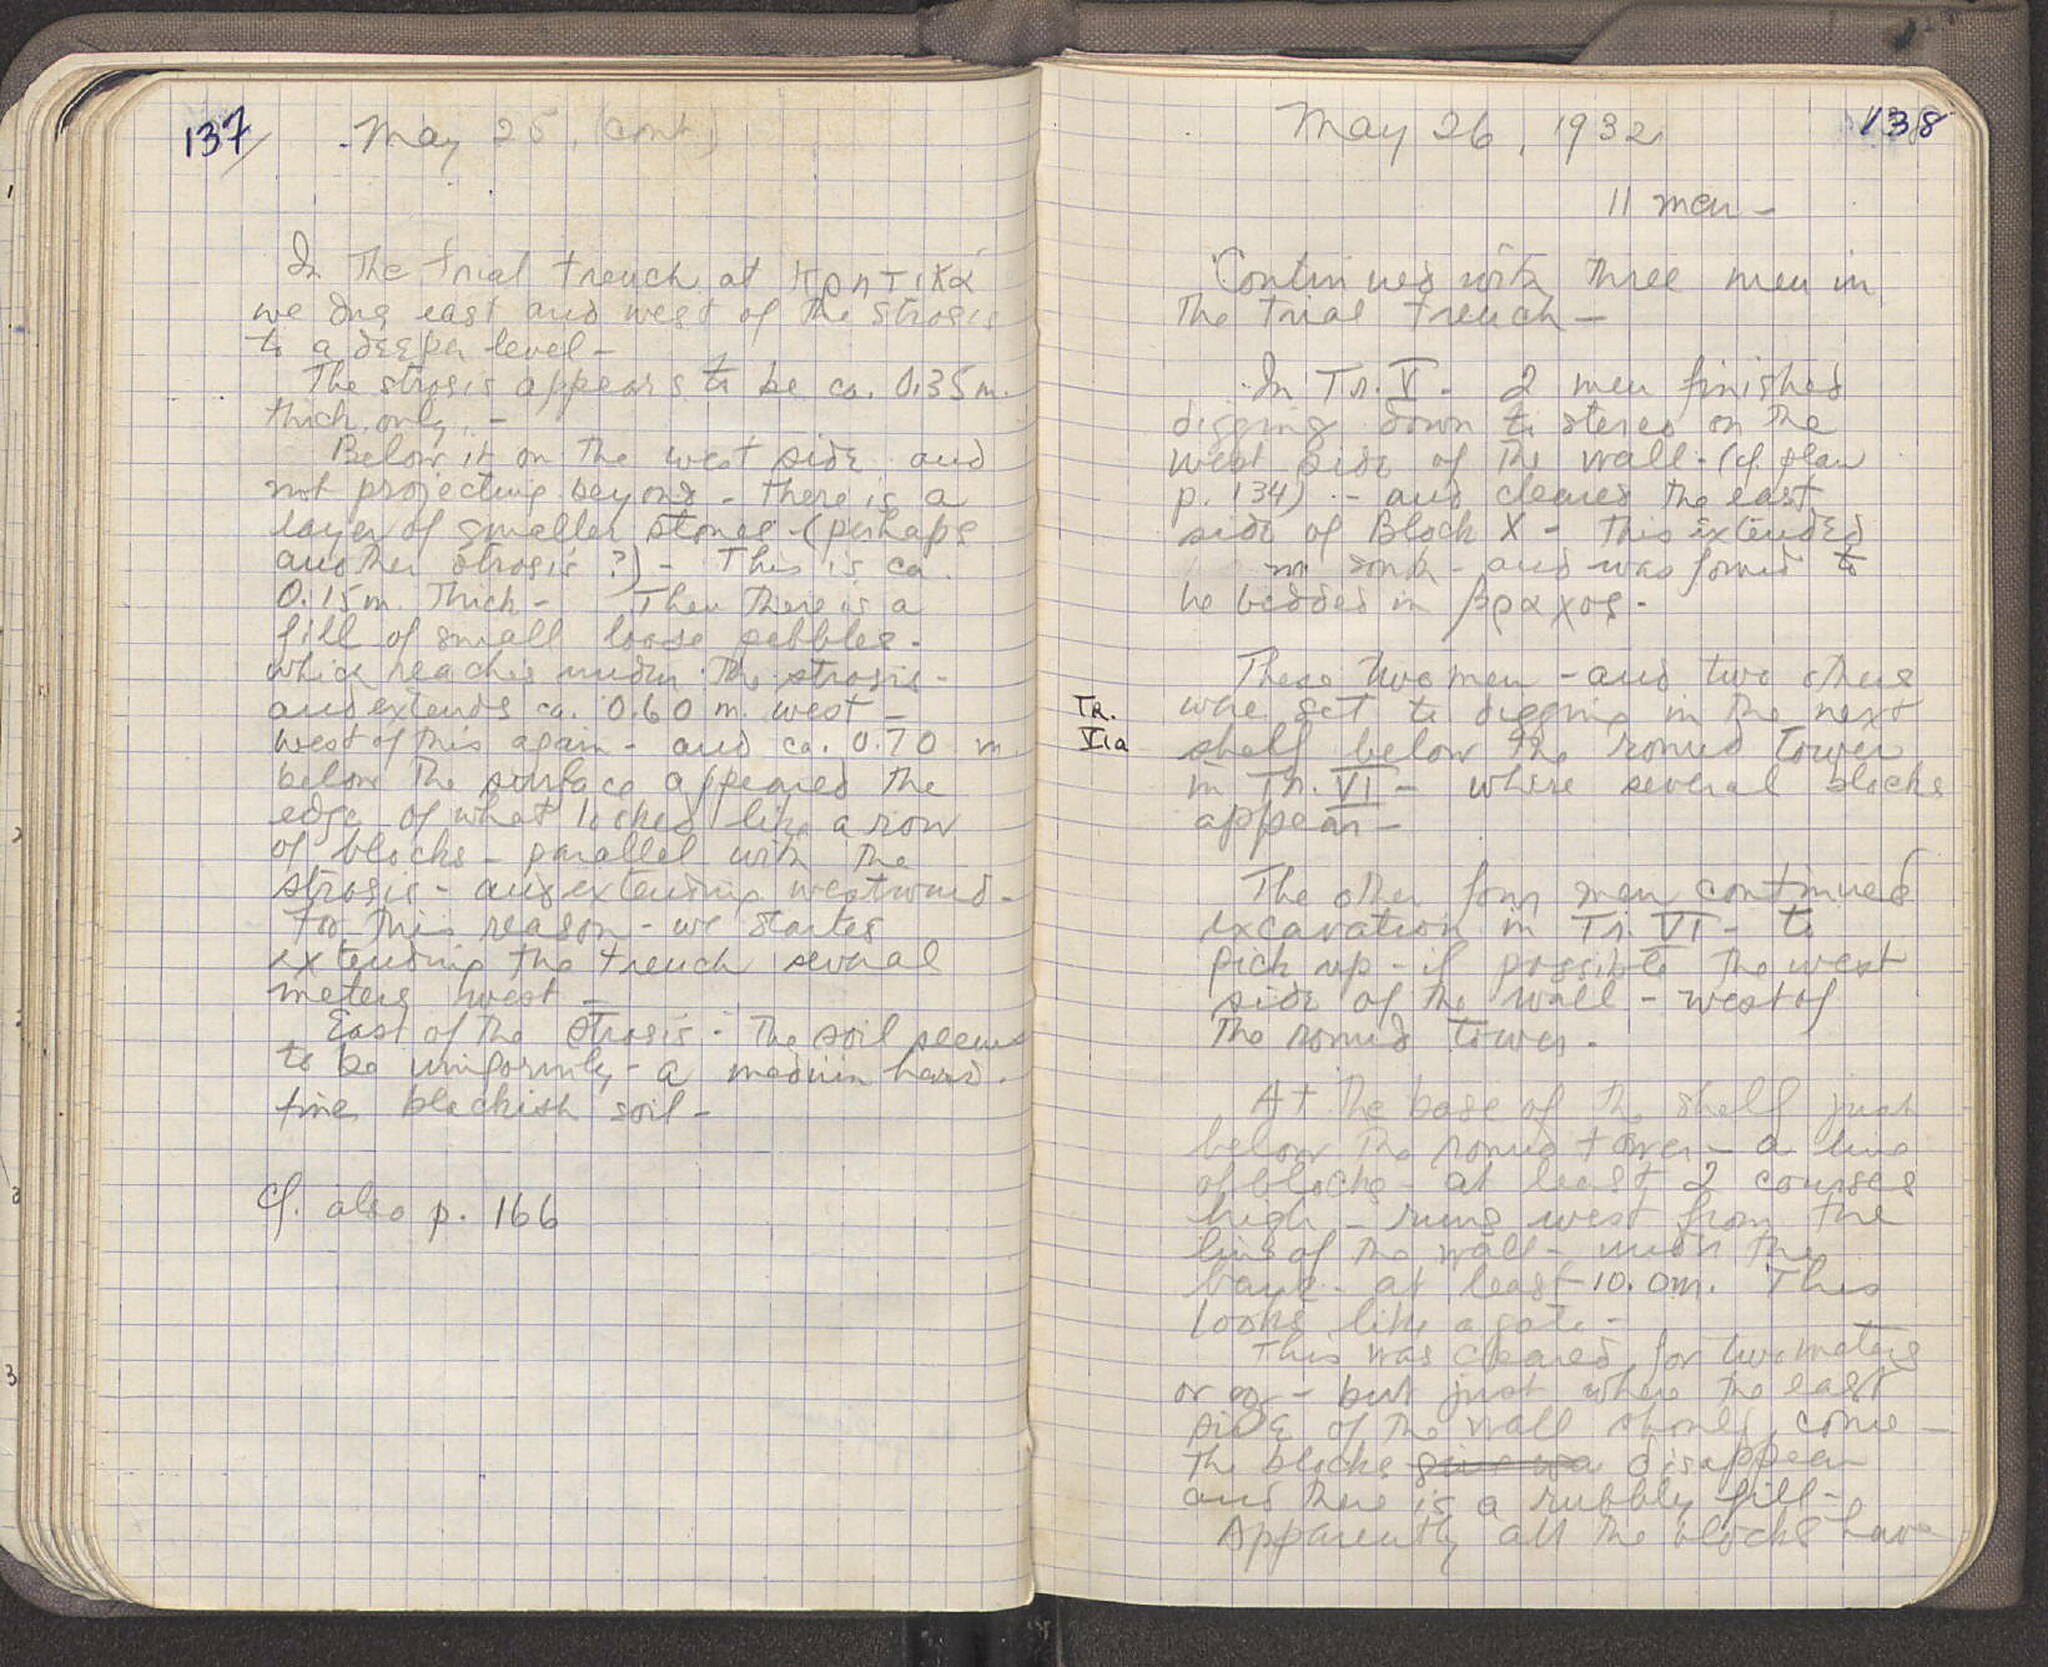 137
May 25, (cont.)
In the trial trench at
we dug east and west of the strosis
to a deeper level -
The strosis appears to be ca. 0.35 m.
thick only. -
Below it on the west side and
not projecting beyond - there is a
layer of smaller stones - (perhaps
another strosis ?) - This is ca.
0.15 m. thick - Then there is a
fill of small loose pebbles -
which reaches under the strosis -
and extends ca. 0.60 m. west -
west of this again - and ca. 0.70 m
below the surface appeared the
edge of what looked like a row
of blocks - parallel with the
strosis - and extending westward -
For this reason - we started
extending the trench several
meters west -
East of the strosis - the soil seems
to be uniformly - a medium hard.
fine, blackish soil -
Cf. also p. 166
138
May 26, 1932
11 men -
Continued with three men in
the trial trench -
In Tr. V - 2 men finished
digging down to stereo on the
west side of the wall - (cf. plan
p. 134) - and cleared the east
side of Block X - This extended
no south - and was found to
be bedded in βραχος -
These two men - and two others
were set to digging in the next
TR.
VIa
shelf below the round tower
in Tr. VI - where several blocks
appear -
The other four men continued
excavation in Tr. VI - to
pick up - if possible the west
side of the wall - west of
the round tower -
At the base of the shelf just
below the round tower - a line
of blocks - at least 2 courses
high - runs west from the
line of the wall - under the
bank - at least 10.0m. This
looks like a gate -
This was cleared for two meters
or so - but just where the east
side of the wall should come -
the blocks give wa disappear
and there is a rubbly fill -
Apparently all the blocks have